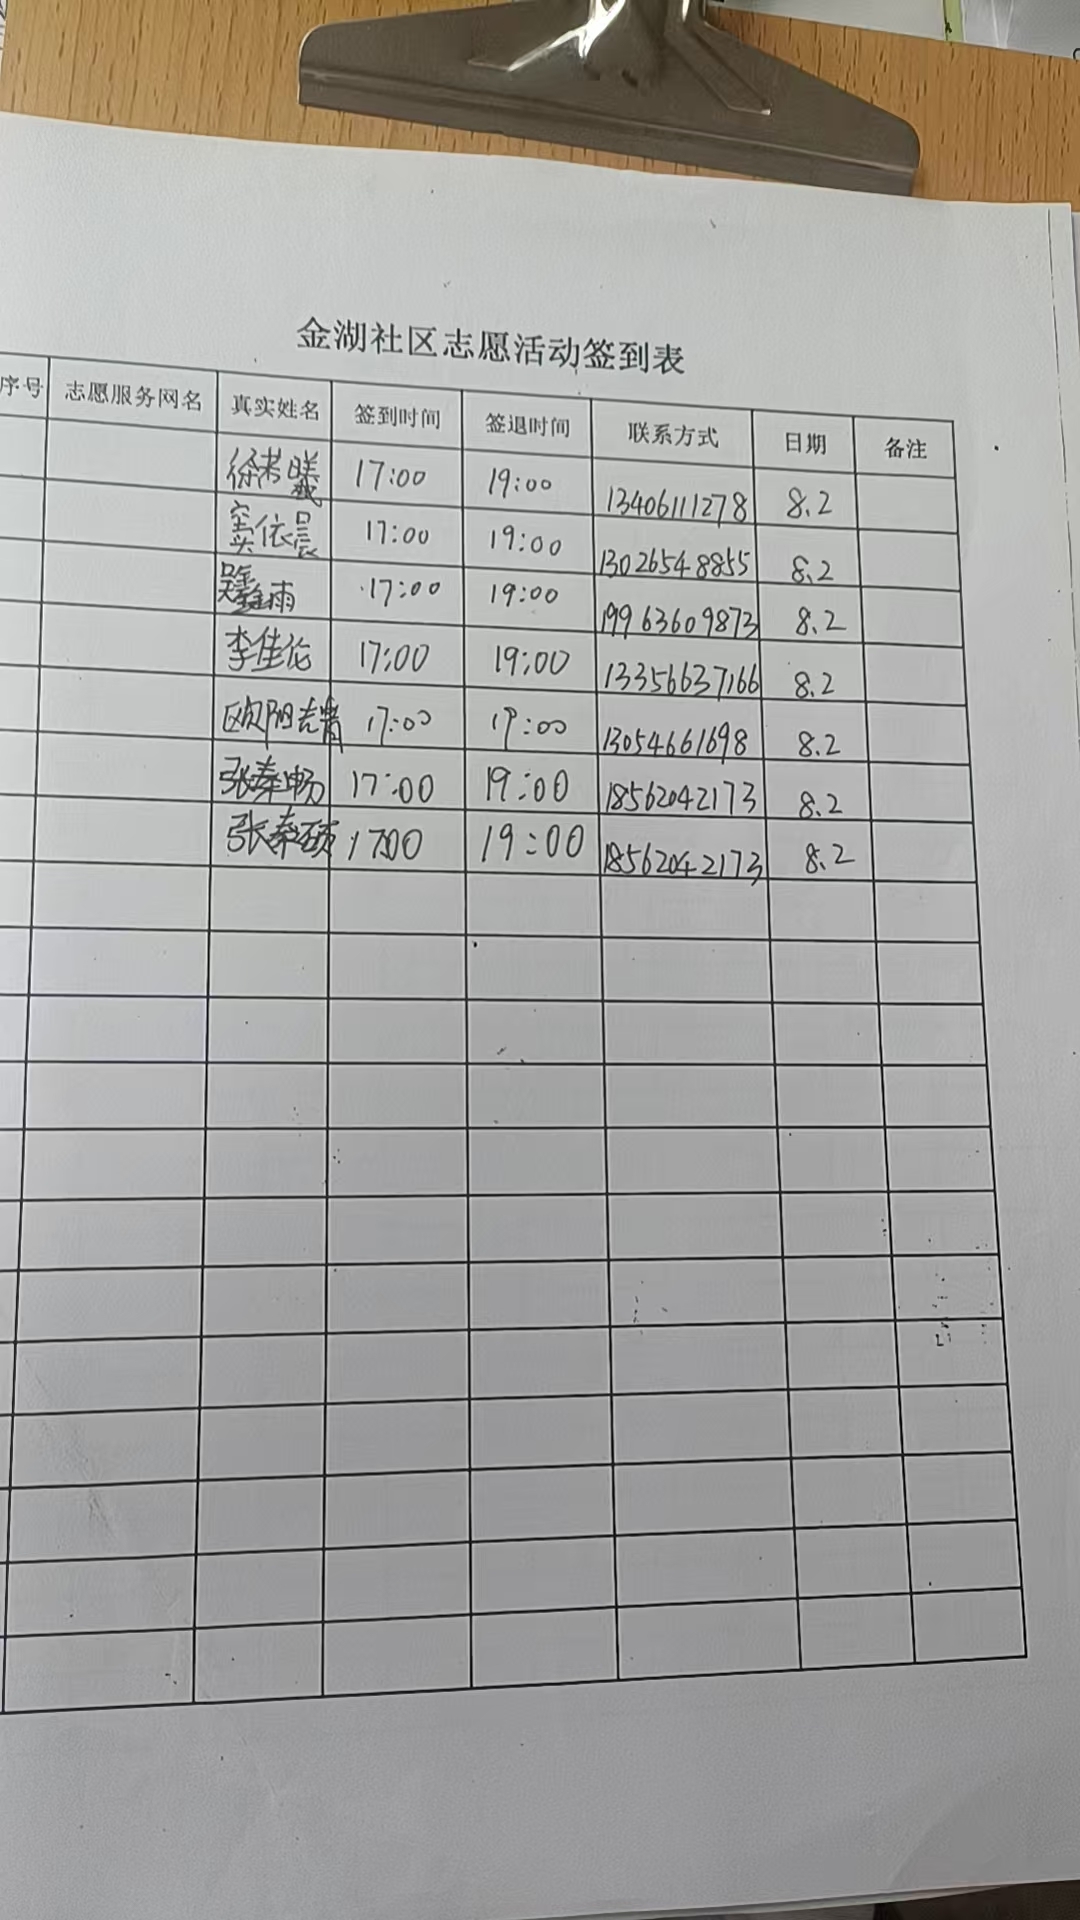 金湖社区志愿活动签到表
序号 志愿服务网名 真实姓名 签到时间 签退时间 联系方式 日期 备注
徐若曦 17:00 19:00 13406111278 8.2
窦依晨 17:00 19:00 13026548855 8.2
吴鑫雨 17:00 19:00 19963609873 8.2
李佳伦 17:00 19:00 13356637166 8.2
欧阳志青 17:00 19:00 13054661698 8.2
张秦畅 17:00 19:00 18562042173 8.2
张秦硕 17:00 19:00 18562042173 8.2